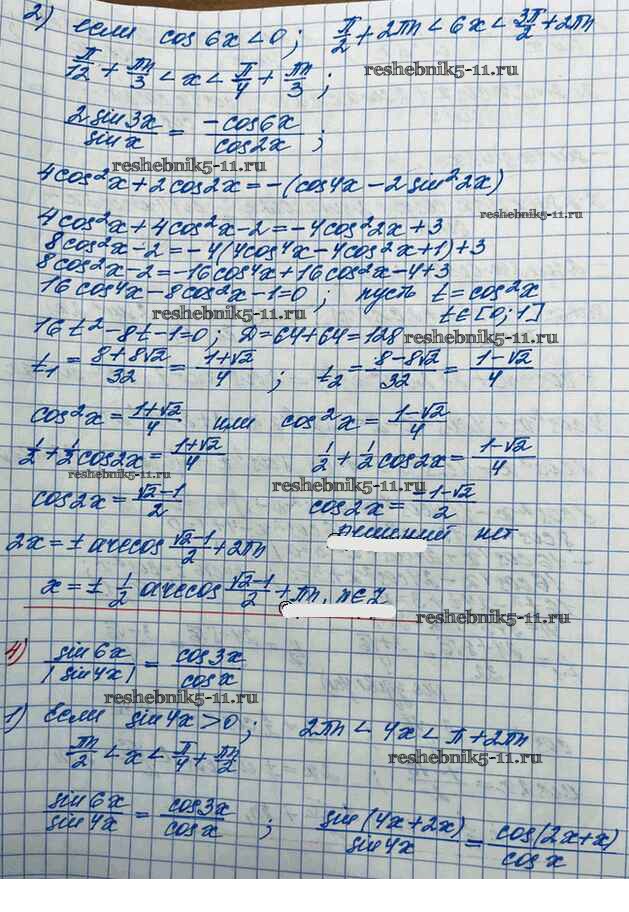 2) если cos6x<0; π/2+2πn<6x<3π/2+2πn
π/12+πn/3<x<π/4+πn/3;
reshebnik5-11.ru
2sin3x/sinx=-cos6x/cos2x;
reshebnik5-11.ru
4cos²x+2cos2x=-(cos4x-2sin²2x)
4cos²x+4cos²x-2=-4cos²2x+3
reshebnik5-11.ru
8cos²x-2=-4(4cos⁴x-4cos²x+1)+3
8cos²x-2=-16cos⁴x+16cos²x-4+3
16cos⁴x-8cos²x-1=0; пусть t=cos²x
t∈[0;1]
reshebnik5-11.ru
16t²-8t-1=0; D=64+64=128
t₁=8+8√2/32=1+√2/4; t₂=8-8√2/32=1-√2/4
cos²x=1+√2/4 или cos²x=1-√2/4
1/2+1/2cos2x=1+√2/4 1/2+1/2cos2x=1-√2/4
reshebnik5-11.ru
reshebnik5-11.ru
cos2x=√2-1/2 cos2x=-1-√2/2
решений нет
2x=±arccos√2-1/2+2πn
x=±1/2arccos√2-1/2+πn, n∈Z
reshebnik5-11.ru
4) sin6x/|sin4x|=cos3x/cosx
reshebnik5-11.ru
1) Если sin4x>0; 2πn<4x<π+2πn
πn/2<x<π/4+πn/2
reshebnik5-11.ru
sin6x/sin4x=cos3x/cosx; sin(4x+2x)/sin4x=cos(2x+x)/cosx
reshebnik5-11.ru